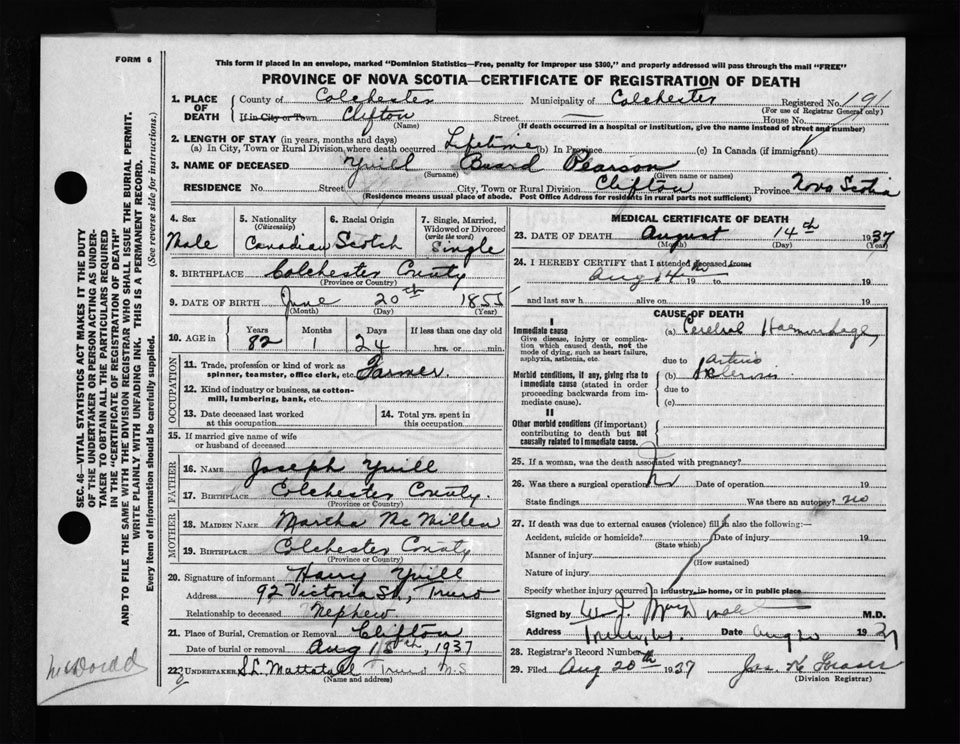 FORM 6
This form if placed in an envelope, marked "Dominion Statistics—Free, penalty for improper use $300," and properly addressed will pass through the mail "FREE"
PROVINCE OF NOVA SCOTIA—CERTIFICATE OF REGISTRATION OF DEATH
1. PLACE OF DEATH { County of Colchester Municipality of Colchester Registered No. 191
(For use of Registrar General only)
If in City or Town Clifton Street — House No.
(Name) (If death occurred in a hospital or institution, give the name instead of street and number)
2. LENGTH OF STAY (in years, months and days)
(a) In City, Town or Rural Division where death occurred Lifetime (b) In Province (c) In Canada (if immigrant)
3. NAME OF DECEASED Yuill Burd Pearson
(Surname) (Given name or names)
RESIDENCE No. Street City, Town or Rural Division Clifton Province Nova Scotia
(Residence means usual place of abode. Post Office Address for residents in rural parts not sufficient)
4. Sex Male
5. Nationality (Citizenship) Canadian
6. Racial Origin Scotch
7. Single, Married, Widowed or Divorced (write the word) Single
8. BIRTHPLACE Colchester County
(Province or Country)
9. DATE OF BIRTH June 20th 1855
(Month) (Day) (Year)
10. AGE in { Years 82 Months 1 Days 24 If less than one day old hrs. or min.
OCCUPATION
11. Trade, profession or kind of work as spinner, teamster, office clark, etc. Farmer.
12. Kind of industry or business, as cotton-mill, lumbering, bank, etc.
13. Date deceased last worked at this occupation
14. Total yrs. spent in this occupation
15. If married give name of wife or husband of deceased
FATHER
16. NAME Joseph Yuill
17. BIRTHPLACE Colchester County.
(Province or Country)
MOTHER
18. MAIDEN NAME Martha McMillen
19. BIRTHPLACE Colchester County
(Province or Country)
20. Signature of informant Harry Yuill
Address 92 Victoria St., Truro
Relationship to deceased Nephew
21. Place of Burial, Cremation or Removal Clifton
Date of burial or removal Aug 15th, 1937
22. UNDERTAKER S.L. Mattatall Truro N.S
(Name and address)
MEDICAL CERTIFICATE OF DEATH
23. DATE OF DEATH August 14th 1937
(Month) (Day) (Year)
24. I HEREBY CERTIFY that I attended deceased from
Aug 14th 19 to 19
and last saw h alive on 19
CAUSE OF DEATH
I
Immediate cause (a) Cerebral Haemorrhage,
Give disease, injury or complication which caused death, not the mode of dying, such as heart failure, asphyxia, asthenia, etc.
due to Arterio
Morbid conditions, if any, giving rise to immediate cause (stated in order proceeding backwards from immediate cause). (b) Sclerosis
due to
(c)
II
Other morbid conditions (if important) contributing to death but not causally related to immediate cause.
25. If a woman, was the death associated with pregnancy?
26. Was there a surgical operation? No
State findings Was there an autopsy? no
27. If death was due to external causes (violence) fill in also the following:—
Accident, suicide or homicide? Date of injury 19
(State which)
Manner of injury
(How sustained)
Nature of injury
Specify whether injury occurred in industry, in home, or in public place
Signed by M.D.
Address Date 1937
28. Registrar's Record Number
29. Filed Aug 20th 1937 Jas. K Fraser
(Division Registrar)
SEC. 46—VITAL STATISTICS ACT MAKES IT THE DUTY
OF THE UNDERTAKER OR PERSON ACTING AS UNDER-
TAKER TO OBTAIN ALL THE PARTICULARS REQUIRED
IN THE "CERTIFICATE OF REGISTRATION OF DEATH"
AND TO FILE THE SAME WITH THE DIVISION REGISTRAR WHO SHALL ISSUE THE BURIAL PERMIT.
WRITE PLAINLY WITH UNFADING INK. THIS IS A PERMANENT RECORD.
Every item of information should be carefully supplied. (See reverse side for instructions.)
McDonald